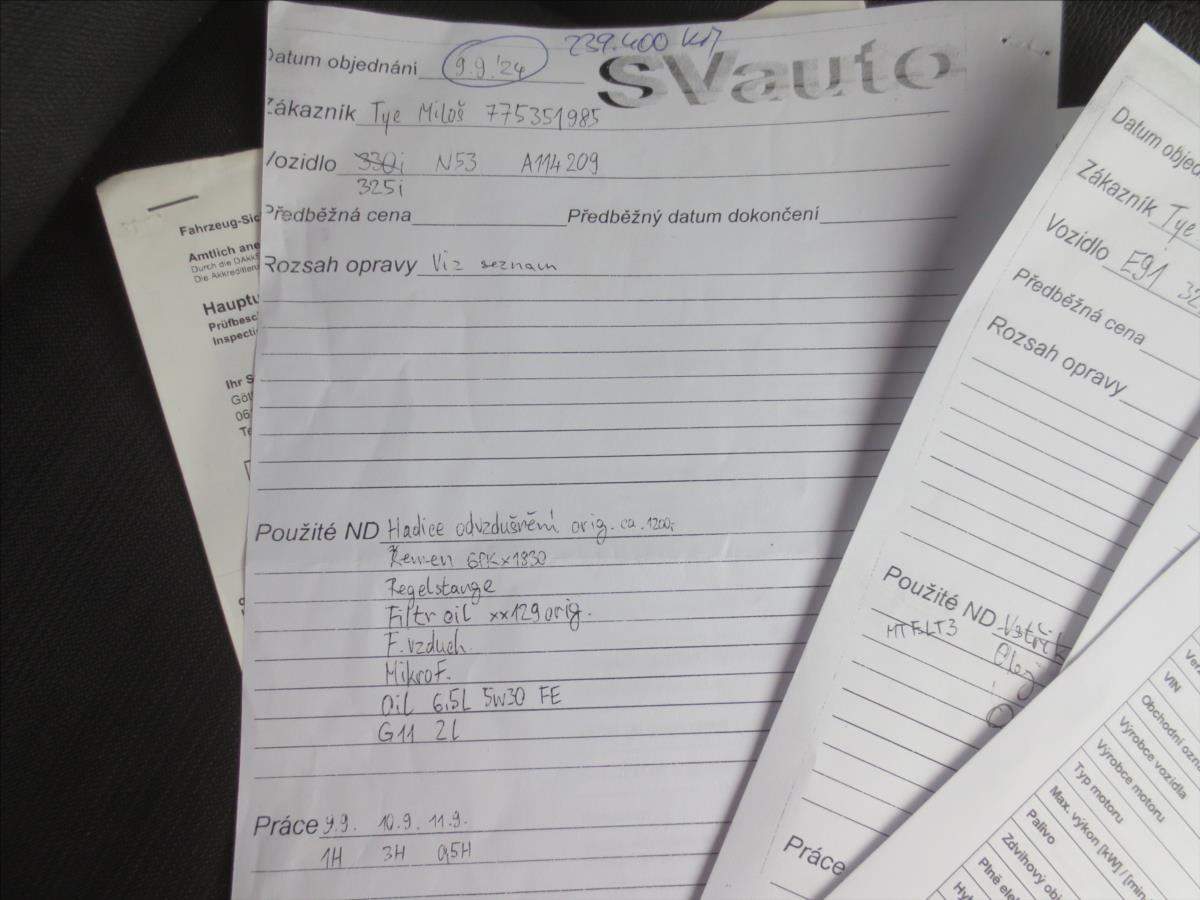 239.400 KM
Datum objednání 9.9.'24 SVauto
Zákazník Tye Miloš 775351985
Vozidlo 330i N53 A114209
325i
Předběžná cena Předběžný datum dokončení
Rozsah opravy Viz seznam
Použité ND Hadice odvzdušnění orig. ca. 1200,-
Řemen 6PK×1830
Regelstange
Filtr oil xx129 orig.
F. vzduch.
Mikrof.
Oil 6,5L 5W30 FE
G11 2l
Práce 9.9. 10.9. 11.9.
1H 3H 0,5H
Fahrzeug-Sic
Amtlich ane
Durch die DAkk
Die Akkreditieru
Hauptu
Prüfbesc
Inspectio
Ihr S
Göt
06
Te
Datum objedn
Zákazník Tye
Vozidlo E91 32
Předběžná cena
Rozsah opravy
Použité ND Vstřik
MTFLT3 Olej
Práce
VIN
Obchodní ozna
Výrobce vozidla
Výrobce motoru
Typ motoru
Max. výkon [kW] / [min
Palivo
Zdvihový obj
Plně elek
Hyb